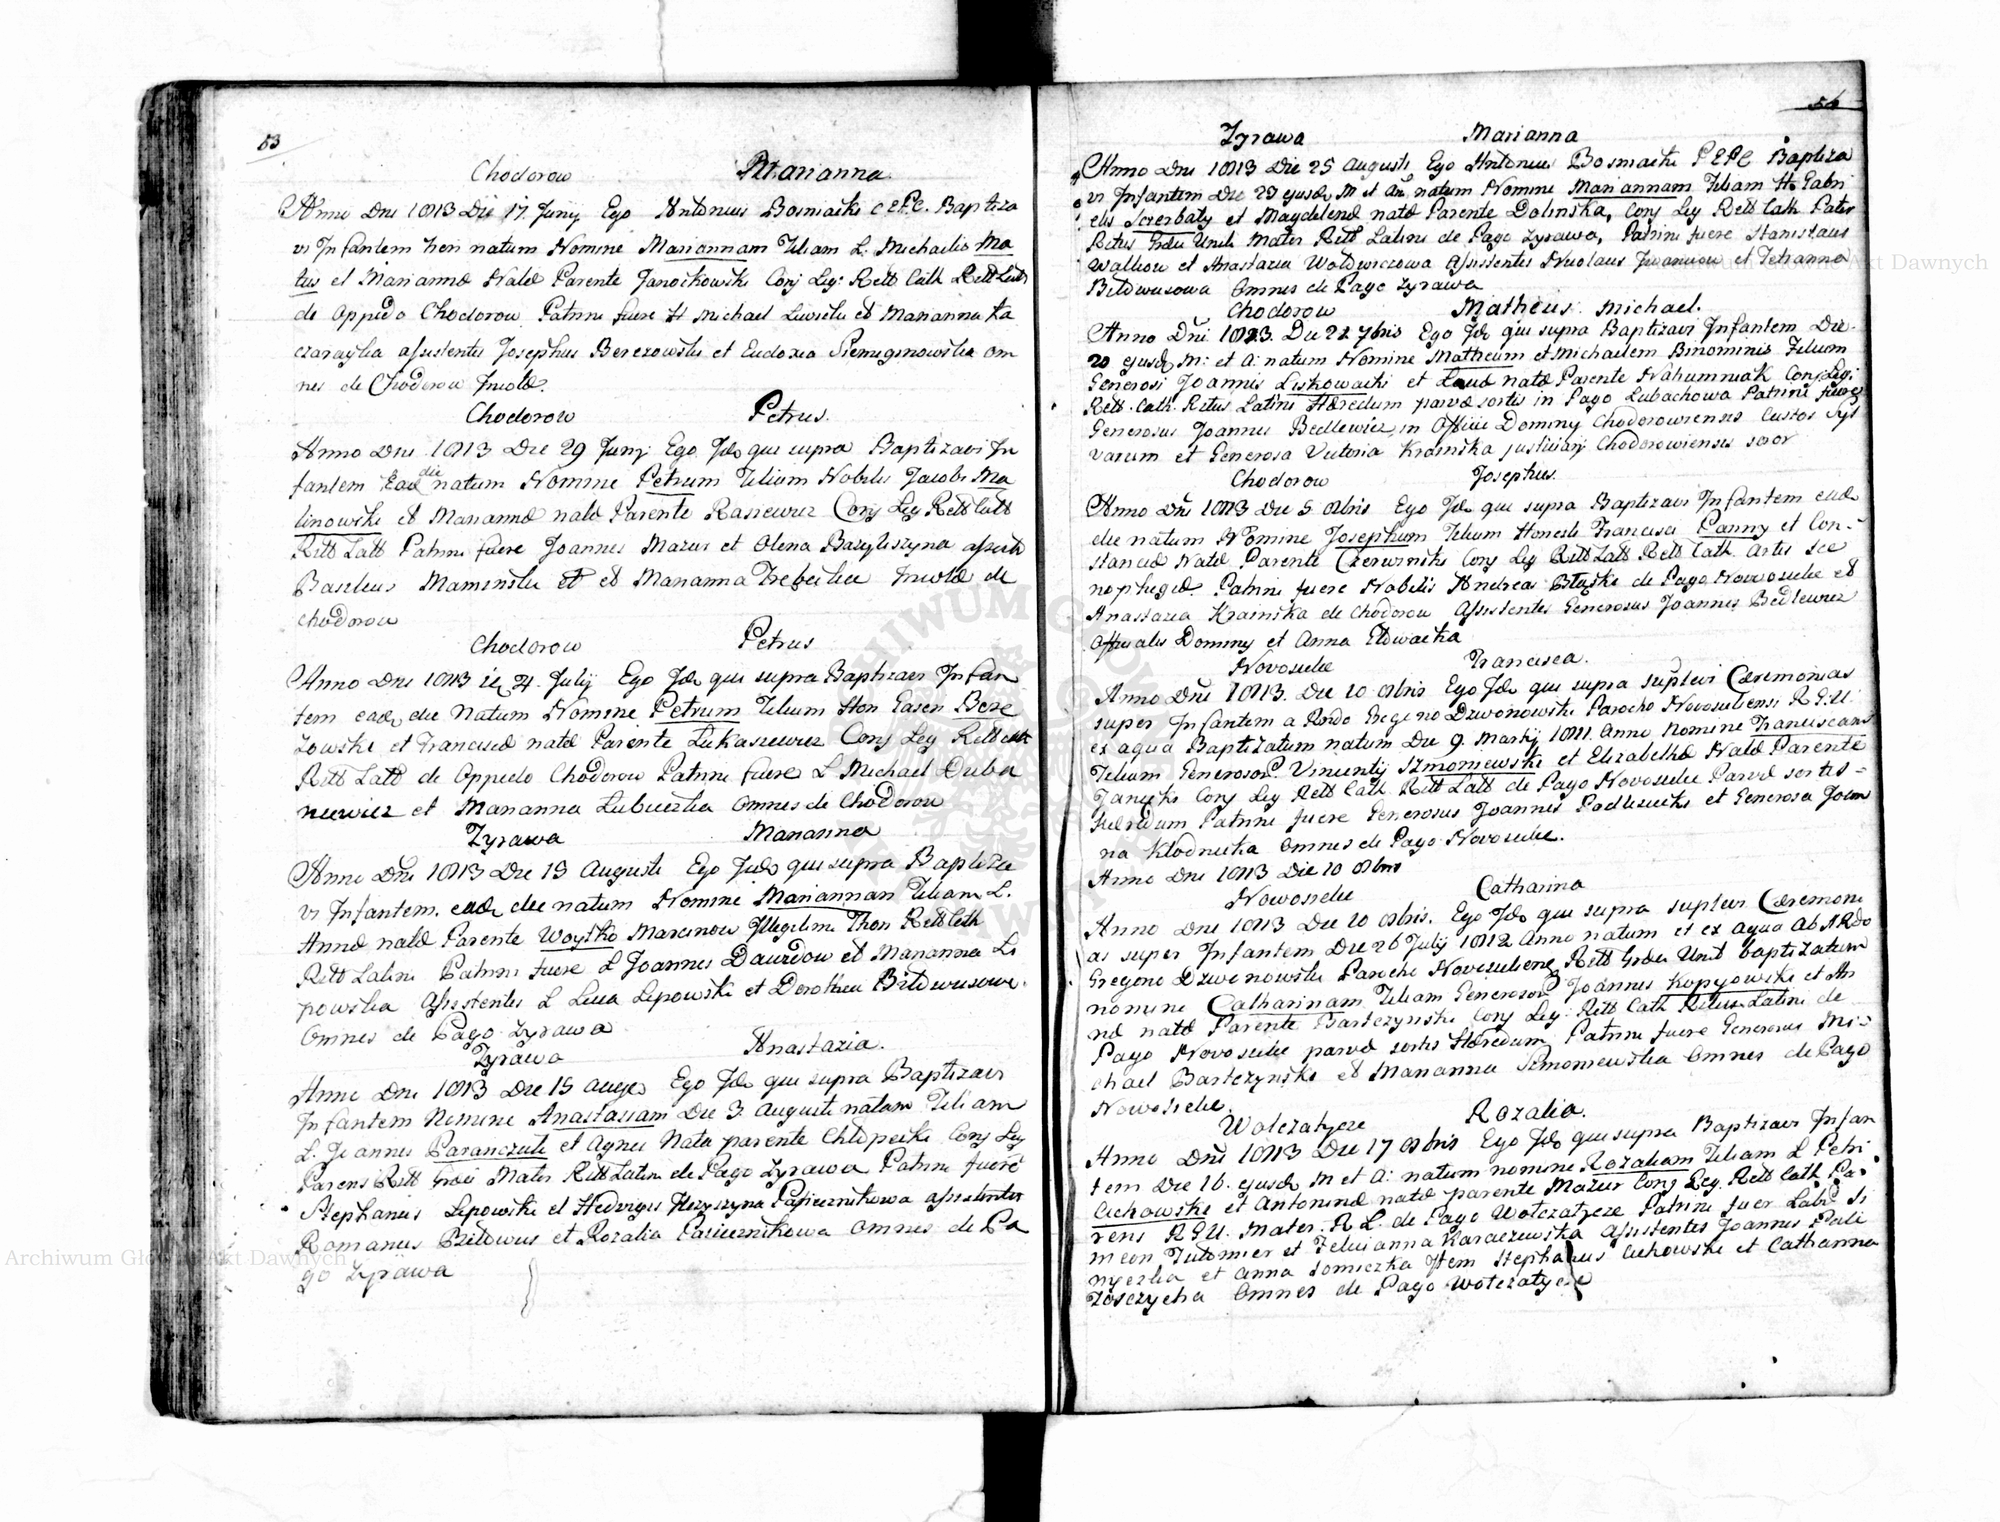 53
Chodorow Marianna
Anno Dni 1813 Die 17. Junij Ego Antonius Bosniacki C E P C. Baptiza
vi Infantem heri natum Nomine Mariannam Filiam L. Michaelis Ma
tus et Marianna Nata Parente Janoikowski Conj Leg: Ritt Cath Ritt Latt
de Oppido Chodorow Patrini fuere H Michael et Marianna Ka
czarayka assistentes Josephus Berezowski et Eudoxia om
nes de Chodorow
Chodorow Petrus.
Anno Dni 1813 Die 29 Junij Ego Jde qui supra Baptizavi In
fantem Ead die natum Nomine Petrum Filium Nobilis Jacobi Ma
linowski et Marianna nata Parente Rasiewicz Conj Leg Ritt Catt
Ritt Latt Patrini fuere Joannes Mazur et Olena Bazyliszyna assist
Basilius et et Marianna de
Chodorow
Chodorow Petrus
Anno Dni 1813 4. Julij Ego Jde qui supra Baptizavi Infan
tem eade die Natum Nomine Petrum Filium Hon Bere
zowski et Francisca nata Parente Lukasiewicz Conj Leg Ritt Catt
Ritt Latt de Oppido Chodorow Patrini fuere L Michael Duba
niewicz et Marianna omnes de Chodorow
Zyrawa Marianna
Anno Dni 1813 Die 13 Augusti Ego Jde qui supra Baptiza
vi Infantem. eade die natum Nomine Mariannam Filiam L.
Anna nata Parente Woytko Marcinow Illegitimi Thori Ritt Cath
Ritt Latini Patrini fuere L Joannes et Marianna Li
powska Assistentes L Luca Lipowski et Dorothea
Omnes de Pago Zyrawa
Zyrawa Anastazia.
Anno Dni 1813 Die 15 Auges Ego Jde qui supra Baptizavi
Infantem Nomine Anastasiam Die 3 Augusti natam Filiam
L. Joannes Paranczuk et Agnes Nata parente Chlopecki Conj Leg
Parens Ritt Graeci Mater Ritt Latini de Pago Zyrawa Patrini fuere
Stephanus Lipowski et Hedvigis Pasiecznikowa assistentes
Romanus et Rozalia Pasiecznikowa omnes de Pa
go Zyrawa
54
Zyrawa Marianna
Anno Dni 1813 Die 25 Augusti Ego Antonius Bosniacki P E P C Baptiza
vi Infantem Die 23 ejusde M et An natum Nomine Mariannam Filiam H. Gabri
elis Szczerbaty et Magdalena nata Parente Dolinska, Conj Leg Ritt Cath Pater
Ritus Graeci Uniti Mater Ritt Latini de Pago Zyrawa, Patrini fuere Stanislaus
Walkow et Anastazia Woldwiczowa Assistentes Nicolaus et
Omnes de Pago Zyrawa
Chodorow Matheus Michael.
Anno Dni 1813. Die 21 7bris Ego Jde qui supra Baptizavi Infantem Die
20 ejusde M: et A: natum Nomine Matheum et Michaelem Binominis Filium
Generosi Joannis Liskowacki et nata Parente Nahumniak Conj Leg:
Ritt. Cath. Ritus Latini Haeredum parva sortis in Pago Lubachowa Patrini fuere
Generosus Joannes Bedlewicz, in Officio Dominy Chodorowiensis Custos Syl
varum et Generosa Victoria Krainska justitiarij Chodorowiensis soror
Chodorow Josephus.
Anno Dni 1813 Die 5 8bris Ego Jde qui supra Baptizavi Infantem eade
die natum Nomine Josephum Filium Honesti Francisci Panny et Con-
stancia Nata Parente Czerwinski Conj Leg Ritt Latt Ritt Cath. Artis Sce
Patrini fuere Nobilis Andreas de Pago Novosielce et
Anastazia Krainska de Chodorow Assistentes Generosus Joannes Bedlewicz
Officialis Dominy et Anna
Novosielce Francisca.
Anno Dni 1813. Die 10 8bris Ego Jde qui supra suplevi Caeremonias
super Infantem a Rndo Gregorio Dzwonowski Parocho Novosielcensi R. G. U.
ex aqua Baptizatum natum Die 9. Martij 1811. Anno Nomine Franciscam
Filiam Generosor Vincentij Szmoniewski et Elizabetha Nata Parente
Janicki Conj Leg Ritt Cath Ritt Latt de Pago Novosielce Parva sortis =
Haeredum Patrini fuere Generosus Joannes et Generosa Joan
na Klodnicka Omnes de Pago Novosielce.
Anno Dni 1813 Die 10 8bris
Nowosielce Catharina
Anno Dni 1813 Die 10 8bris. Ego Jde qui supra suplevi Caeremoni
as super Infantem Die 26 Julij 1812 Anno natum et ex aqua Ab A Rdo
Gregorio Dzwonowski Parocho Novosielcens Ritt Graeci Unit baptizatum
nomine Catharinam Filiam Generosor Joannes Kopyowski et An
na nata Parente Bartczynski Conj Leg: Ritt Cath Ritus Latini de
Pago Novosielce parva sortis Haeredum Patrini fuere Generosus Mi-
chael Bartczynski et Marianna Szmoniewska Omnes de Pago
Nowosielce.
Wolczatycze Rozalia.
Anno Dni 1813 Die 17 8bris Ego Jde qui supra Baptizavi Infan
tem Die 16. ejusde M et A: natum nomine Rozaliam Filiam L Petri
Cichowski et Antonina nata parente Mazur Conj Leg. Ritt Cath Pa-
rens R G U. Mater. R L. de Pago Wolczatycze Patrini fuer Labr Si
meon et Karaczewska Assistentes Joannes
et Anna Item Stephanus Cichowski et Catharina
Omnes de Pago Wolczatycze
Archiwum Główne Akt Dawnych